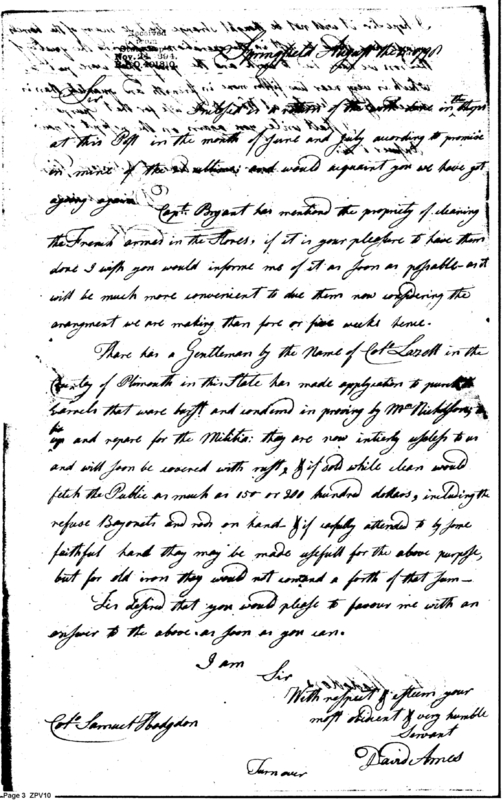 Received
Nov. 24
Springfield August the
Sir
Inclosed is a return of the work done in the
at this Post in the month of June and July according to promise
in mine of the ultimo and would acquaint you we have got
agoing again
Capt. Bryant has mentiond the propriety of cleaning
the French armes in the Stores, if it is your pleasure to have them
done I wish you would informe me of it as soon as possable as it
will be much more convenient to due them now considering the
arangment we are making than fore or five weeks hence.
There has a Gentleman by the Name of Col. Lazell in the
County of Plimouth in this State has made application to purch
barrels that ware burst and condemd in proving by Mr
up and repare for the Militia: they are now intierly useless to us
and will soon be covered with rust, & if sold while clean would
fetch the Public as much as 150 or 200 hundred dollars, including the
refuse Bayonets and rods on hand & if carfully attended to by some
faithful hand they may be made usefull for the above purpose,
but for old iron they would not comand a forth of that sum—
Tis desired that you would please to favour me with an
answer to the above as soon as you can.
I am
Sir
With respect & esteem your
most obedient & very humble
Servant
David Ames
Colo. Samuel Hodgdon
Turnover
Page 3 ZPV10